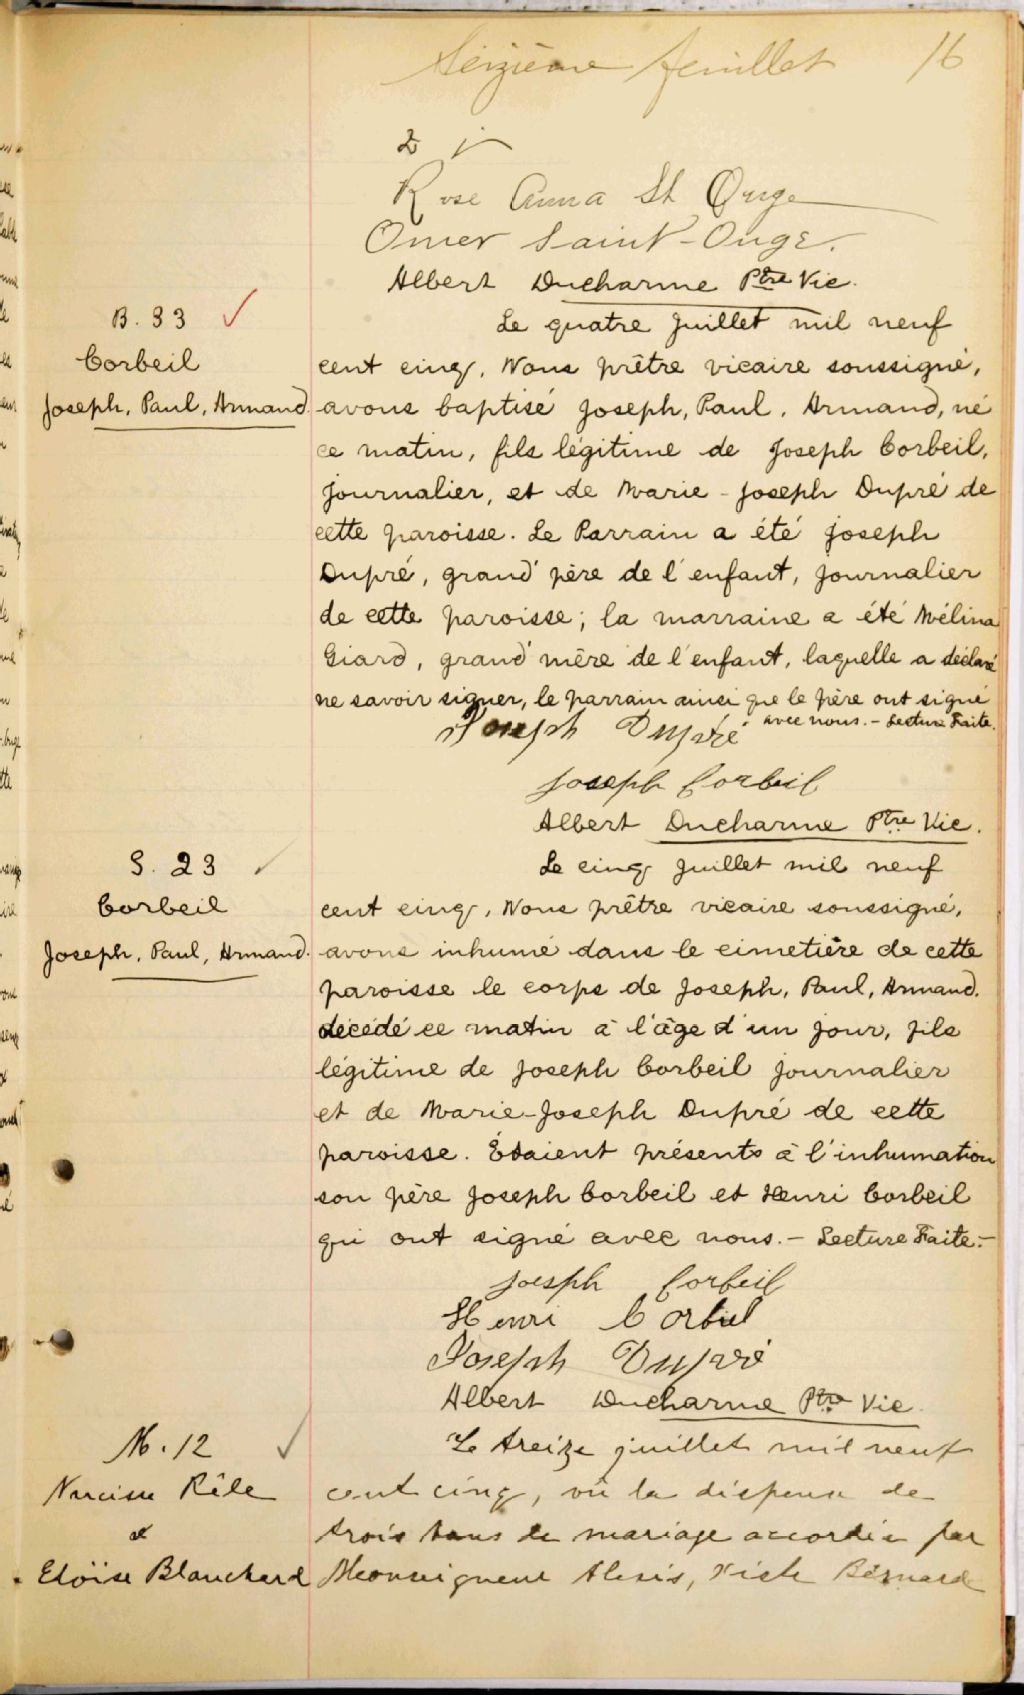 Seizième feuillet 16
Rose Anna St Onge
Omer Saint-Onge.
Albert Ducharme Ptre Vic.
B. 33
Corbeil
Joseph, Paul, Armand
Le quatre juillet mil neuf
cent cinq, Nous prêtre vicaire soussigné,
avons baptisé Joseph, Paul, Armand, né
ce matin, fils légitime de Joseph Corbeil,
journalier, et de Marie-Joseph Dupré de
cette paroisse. Le Parrain a été Joseph
Dupré, grand'père de l'enfant, journalier
de cette paroisse; la marraine a été Mélina
Giard, grand'mère de l'enfant, laquelle a déclaré
ne savoir signer, le parrain ainsi que le père ont signé
avec nous. - Lecture Faite.
Joseph Dupré
Joseph Corbeil
Albert Ducharme Ptre Vic.
S. 23
Corbeil
Joseph, Paul, Armand.
Le cinq juillet mil neuf
cent cinq, Nous prêtre vicaire soussigné,
avons inhumé dans le cimetière de cette
paroisse le corps de Joseph, Paul, Armand,
décédé ce matin à l'âge d'un jour, fils
légitime de Joseph Corbeil journalier
et de Marie-Joseph Dupré de cette
paroisse. Étaient présents à l'inhumation
son père Joseph Corbeil et Henri Corbeil
qui ont signé avec nous. - Lecture Faite. -
Joesph Corbeil
Henri Corbiel
Joseph Dupré
Albert Ducharme Ptre Vic.
M. 12
Narcisse Rêle
et
Eloïse Blanchard
Le treize juillet mil neuf
cent cinq, vû la dispense de
trois bans de mariage accordée par
Monseigneur Alexis, Xiste Bernard